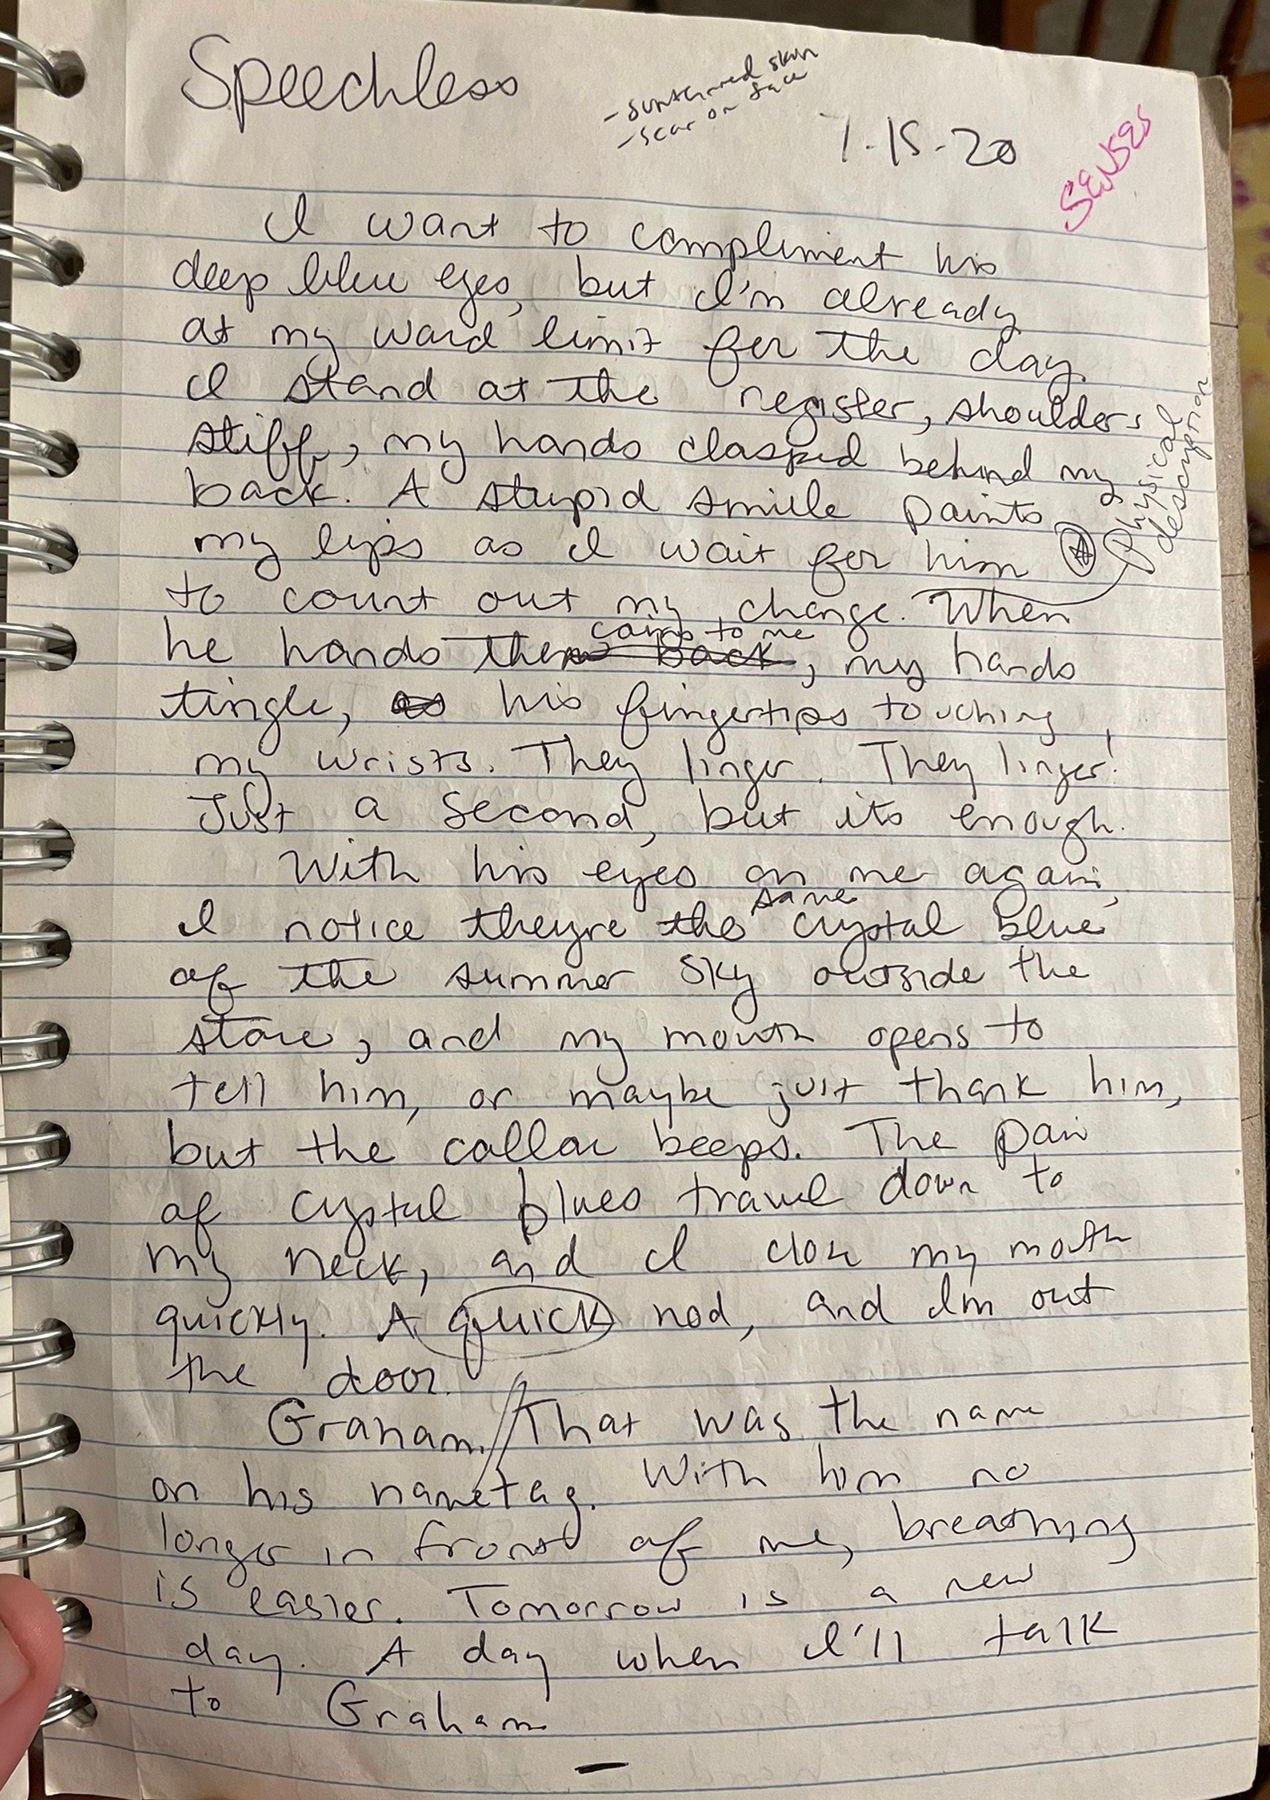 Speechless
- suntanned skin
- scar on face
7.15.20
SENSES
I want to compliment his
deep blue eyes, but I'm already
at my word limit for the day.
I stand at the register, shoulders
stiff, my hands clasped behind my
back. A stupid smile paints
my lips as I wait for him
physical
description
to count out my change. When
coins to me
he hands them back, my hands
tingle, as his fingertips touching
my wrists. They linger. They linger!
Just a second, but its enough.
With his eyes on me again,
same
I notice theyre the crystal blue
of the summer sky outside the
store, and my mouth opens to
tell him, or maybe just thank him,
but the collar beeps. The pair
of crystal blues travel down to
my neck, and I close my mouth
quickly. A quick nod, and I'm out
the door.
Graham. That was the name
on his nametag. With him no
longer in front of me, breathing
is easier. Tomorrow is a new
day. A day when I'll talk
to Graham